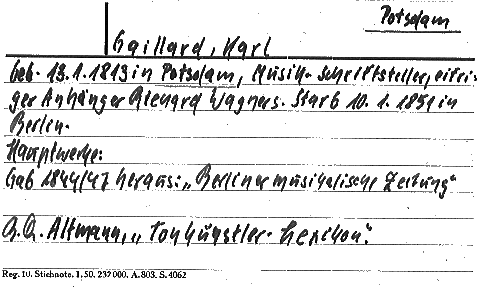 Potsdam
Gaillard, Karl
Geb. 13.1.1813 in Potsdam, Musik-Schriftsteller, eifri-
ger Anhänger Richard Wagners. Starb 10.1.1851 in
Berlin.
Hauptwerke:
Gab 1844/47 heraus: „Berliner musikalische Zeitung"
Altmann, „Tonkünstler-Lexikon".
Reg. 10. Stichnote. 1, 50. 237000. A. 803. S. 4062